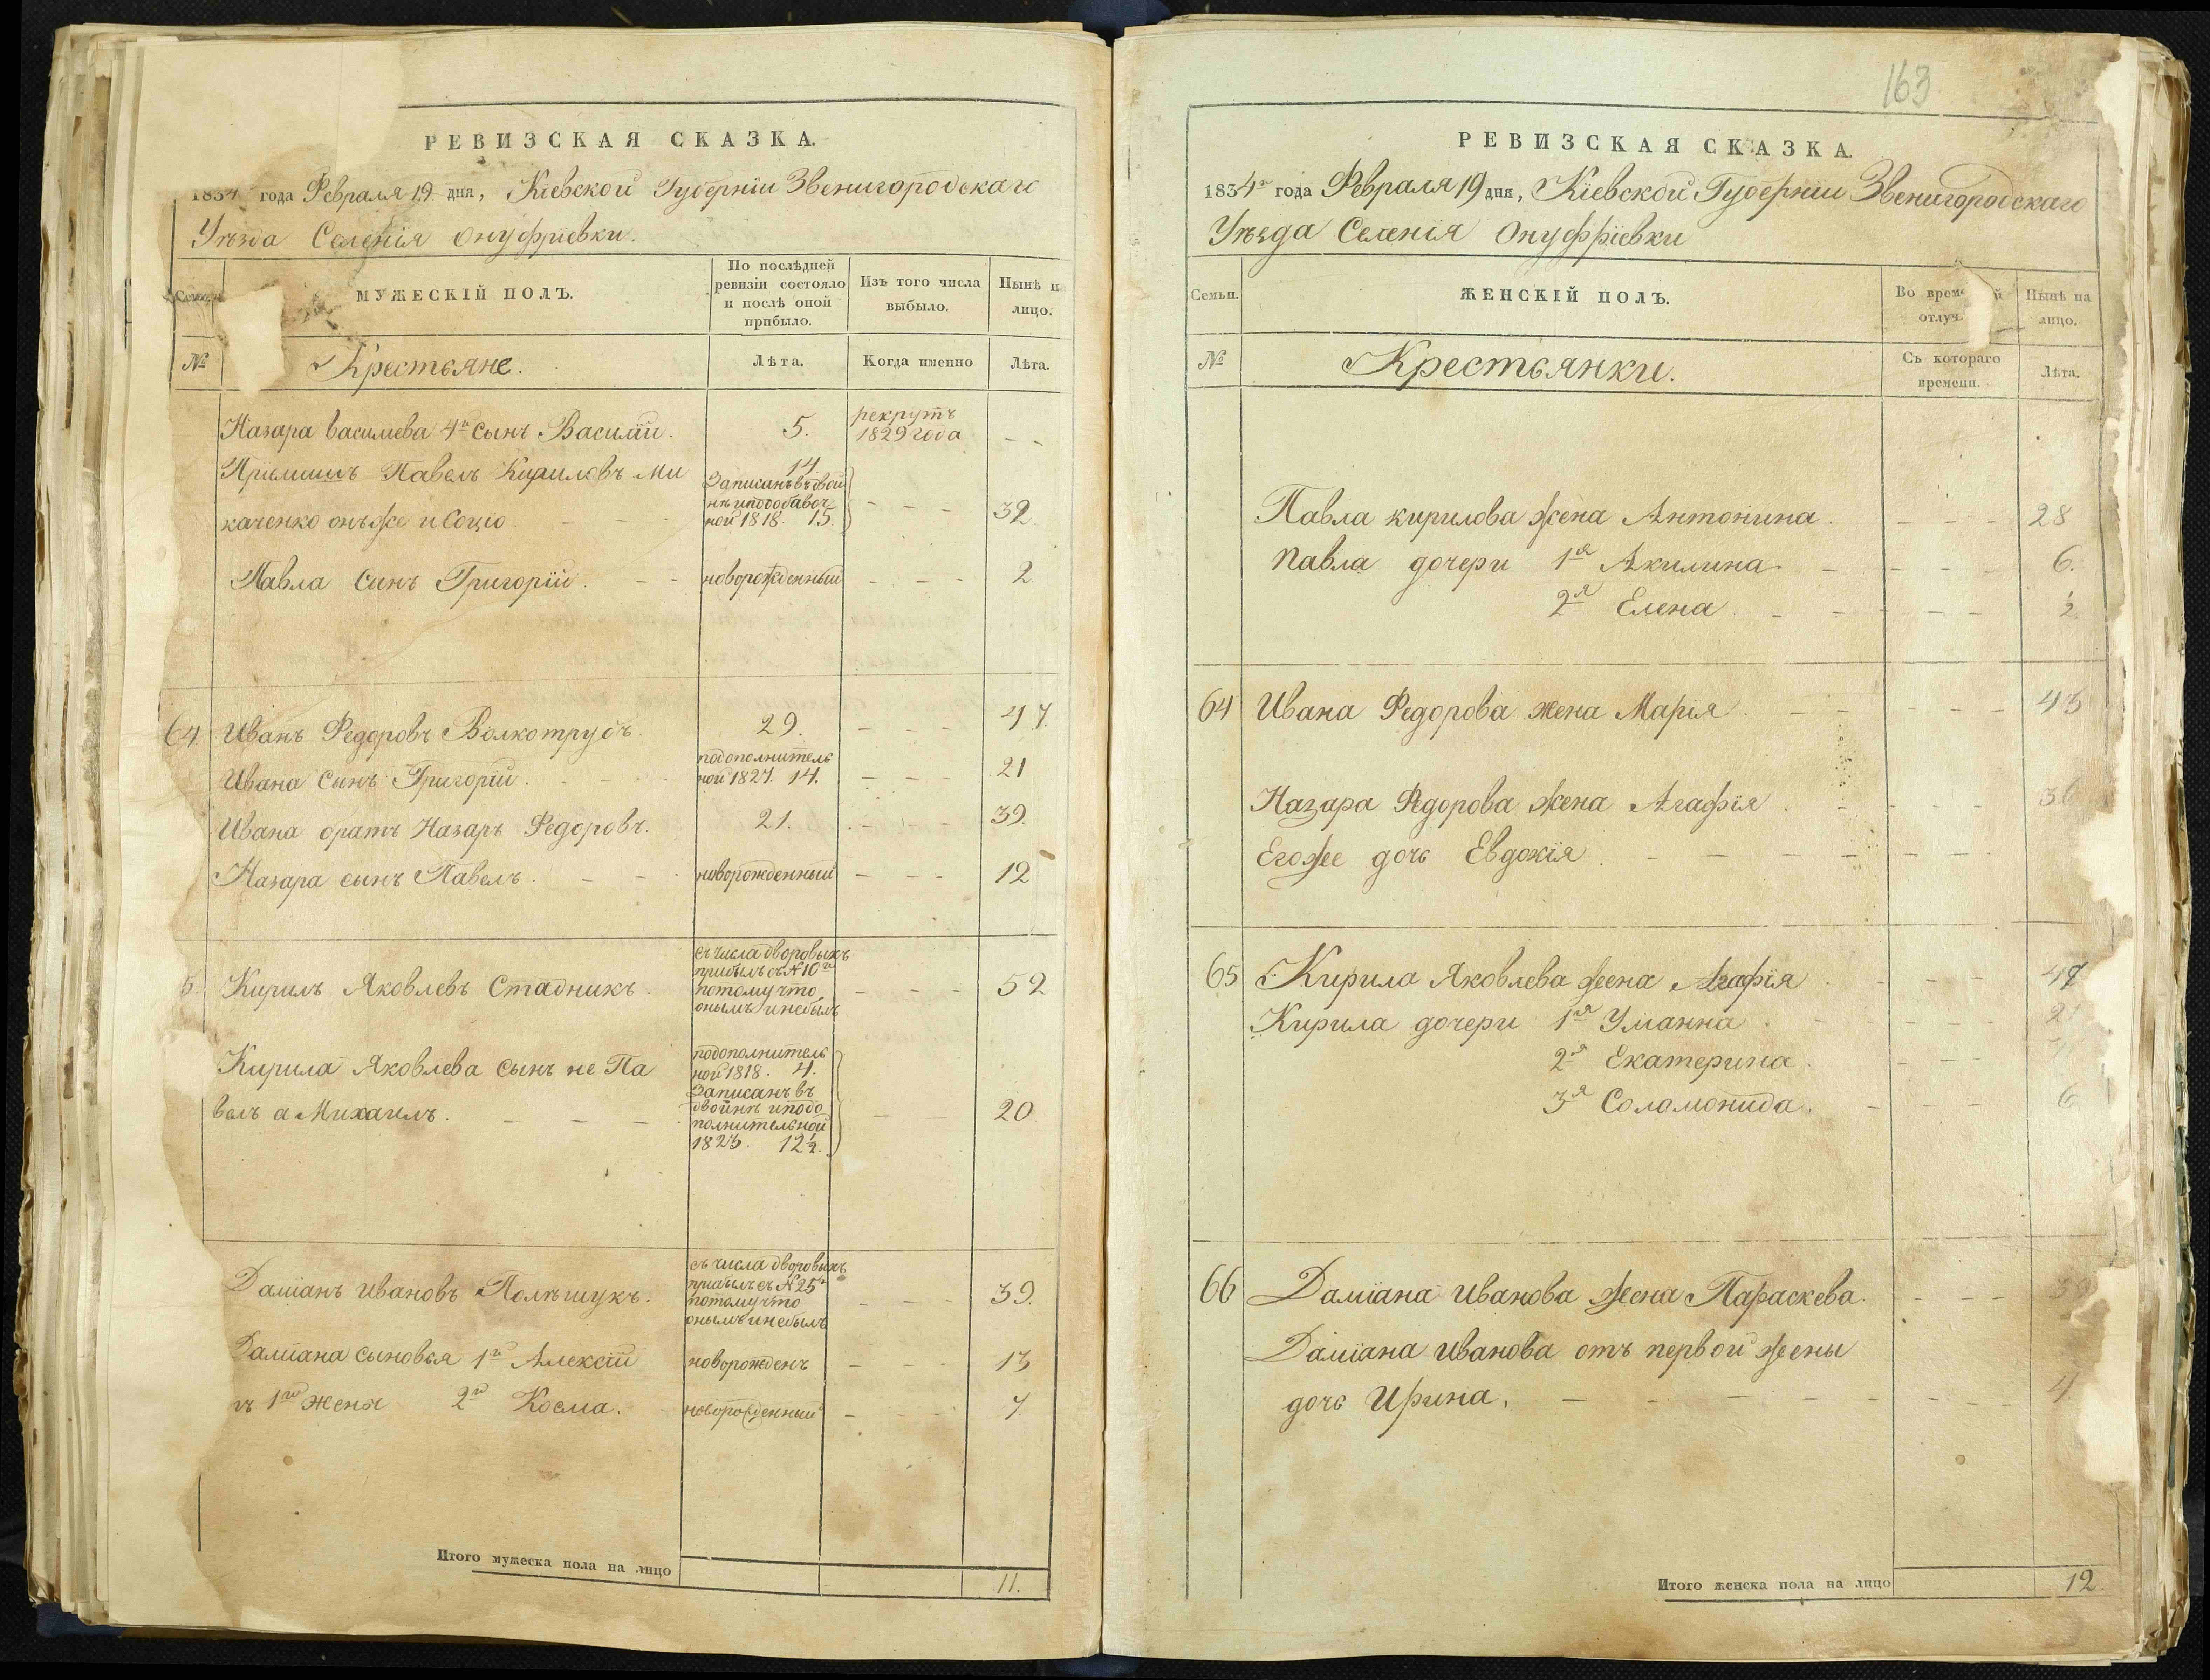 РЕВИЗСКАЯ СКАЗКА.
1834 года Февраля 19 дня, Кіевской Губерніи Звенигородскаго
Уѣзда Селенія Онуфріевки.
Семьи.
МУЖЕСКІЙ ПОЛЪ.
По послѣдней ревизіи состояло и послѣ оной прибыло.
Изъ того числа выбыло.
Нынѣ н лицо.
№
Крестьяне.
Лѣта.
Когда именно
Лѣта.
Назара Василиева 4й сынъ Василій. 5. рекрутъ 1829 года - -
Приемышъ Павелъ Кириловъ Ми 14
каченко онъ же и Соціо - - записанъ въ двой нѣ и по добавоч ной 1818. 15. - - - 32.
Павла Сынъ Григорій. - - новорожденный - - - 2
64. Иванъ Федоровъ Волкотрубъ 29. - - - 47.
Ивана Сынъ Григорій. - - по дополнитель ной 1827. 14. - - - 21
Ивана братъ Назаръ Федоровъ. 21. - - - 39.
Назара сынъ Павелъ. - - - новорожденный - - - 12
5. Кирилъ Яковлевъ Стадникъ. съ числа дворовыхъ прибылъ съ № 10го потому что онымъ и небылъ - - - 52
Кирила Яковлева сынъ не Па по дополнитель ной 1818. 4.
велъ а Михаилъ. - - - - записанъ въ двойнѣ и по до полнительной 1825. 12½. - - 20
Даміанъ Ивановъ Полѣщукъ. съ числа дворовыхъ прибылъ съ № 25го потому что онымъ и небылъ - - - 39.
Даміана сыновья 1й Алексій новорожденъ - - - 13
ъ 1й жены 2й Косма. новорожденный - - - 7.
Итого мужеска пола на лицо 11.
163
РЕВИЗСКАЯ СКАЗКА.
1834го года Февраля 19 дня, Кіевской Губерніи Звенигородскаго
Уѣзда Селенія Онуфріевки
Семьи.
ЖЕНСКІЙ ПОЛЪ.
Во врем й отлуч
Нынѣ на лицо.
№
Крестьянки.
Съ котораго времени.
Лѣта.
Павла Кирилова жена Антонина. - - - 28
Павла дочери 1я Акилина. - - - - 6.
2я Елена. - - - - - ½
64 Ивана Федорова жена Марія. - - - - - 43
Назара Федорова жена Агафія. - - - -
Егоже дочь Евдокія. - - - - - - -
65 Кирила Яковлева жена Агафія. - - - 47
Кирила дочери 1я Уліанна. - - - -
2я Екатерина. - - -
3я Соломонида. - - - - 6
66 Даміана Иванова жена Параскева. - - -
Даміана Иванова отъ первой жены
дочь Ирина. - - - - - - - 4
Итого женска пола на лицо 12.